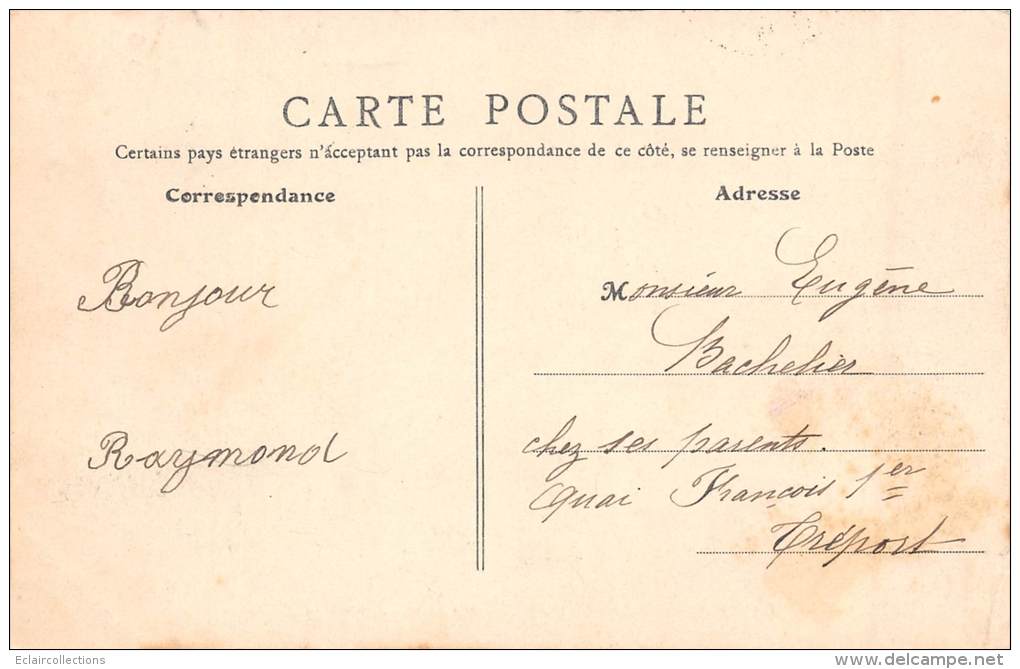 CARTE POSTALE
Certains pays étrangers n'acceptant pas la correspondance de ce côté, se renseigner à la Poste
Correspondance
Bonjour
Raymond
Adresse
Monsieur Eugène
Bachelier
chez ses parents.
Quai François 1er
Tréport
Eclaircollections
www.delcampe.net